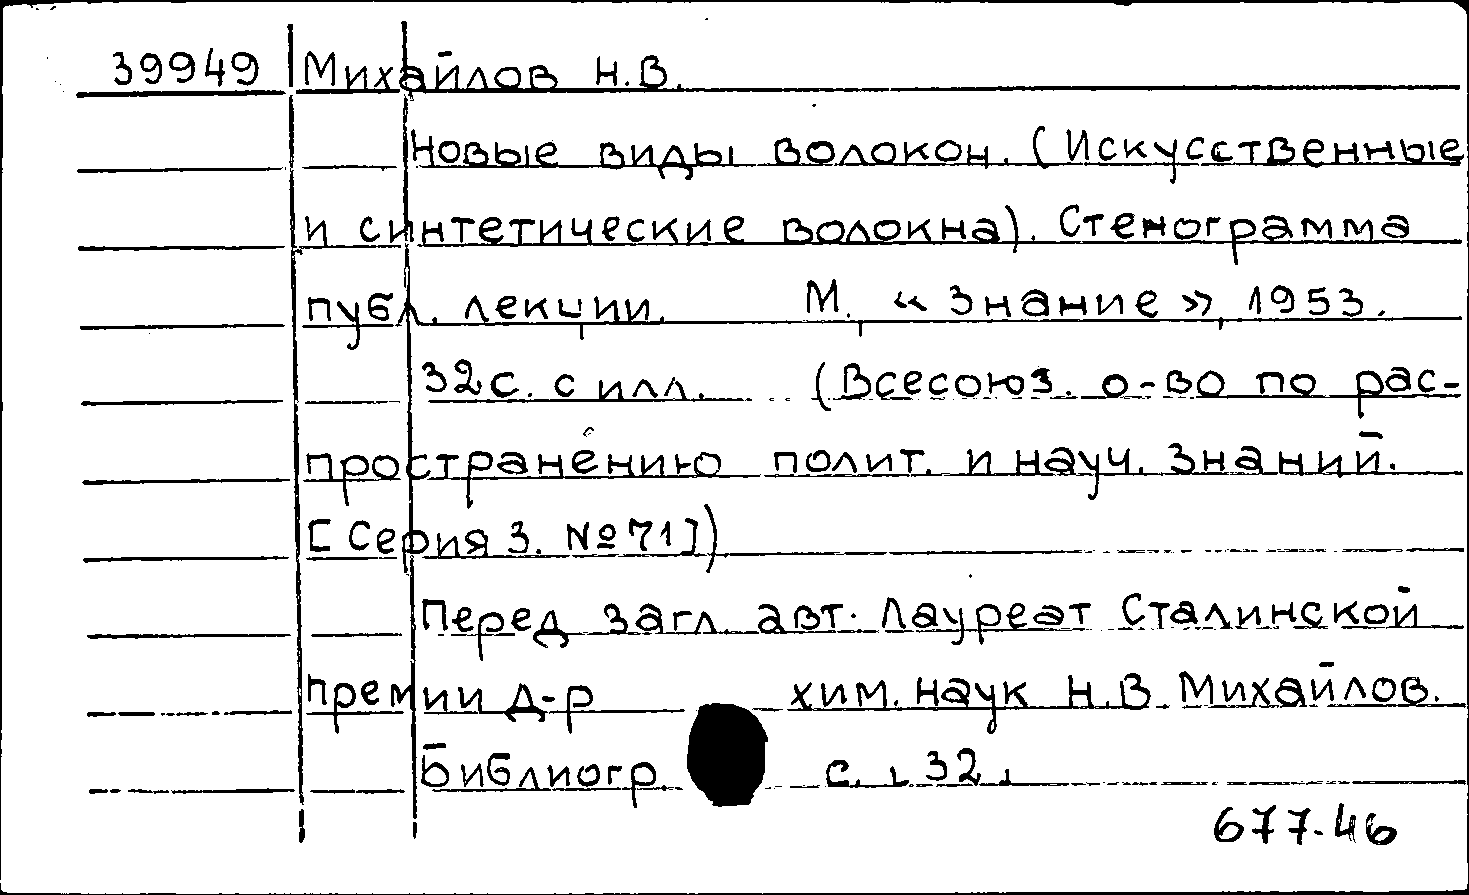 39949 Михайлов Н.В.
Новые виды волокон. (Искусственные
и синтетические волокна). Стенограмма
публ. лекции. М., «Знание», 1953.
32с. с илл. (Всесоюз. о-во по рас-
пространению полит. и науч. знаний.
[Серия 3. №71])
Перед загл. авт. Лауреат Сталинской
премии д-р хим. наук Н.В. Михайлов.
Библиогр. с. 32.
677.46